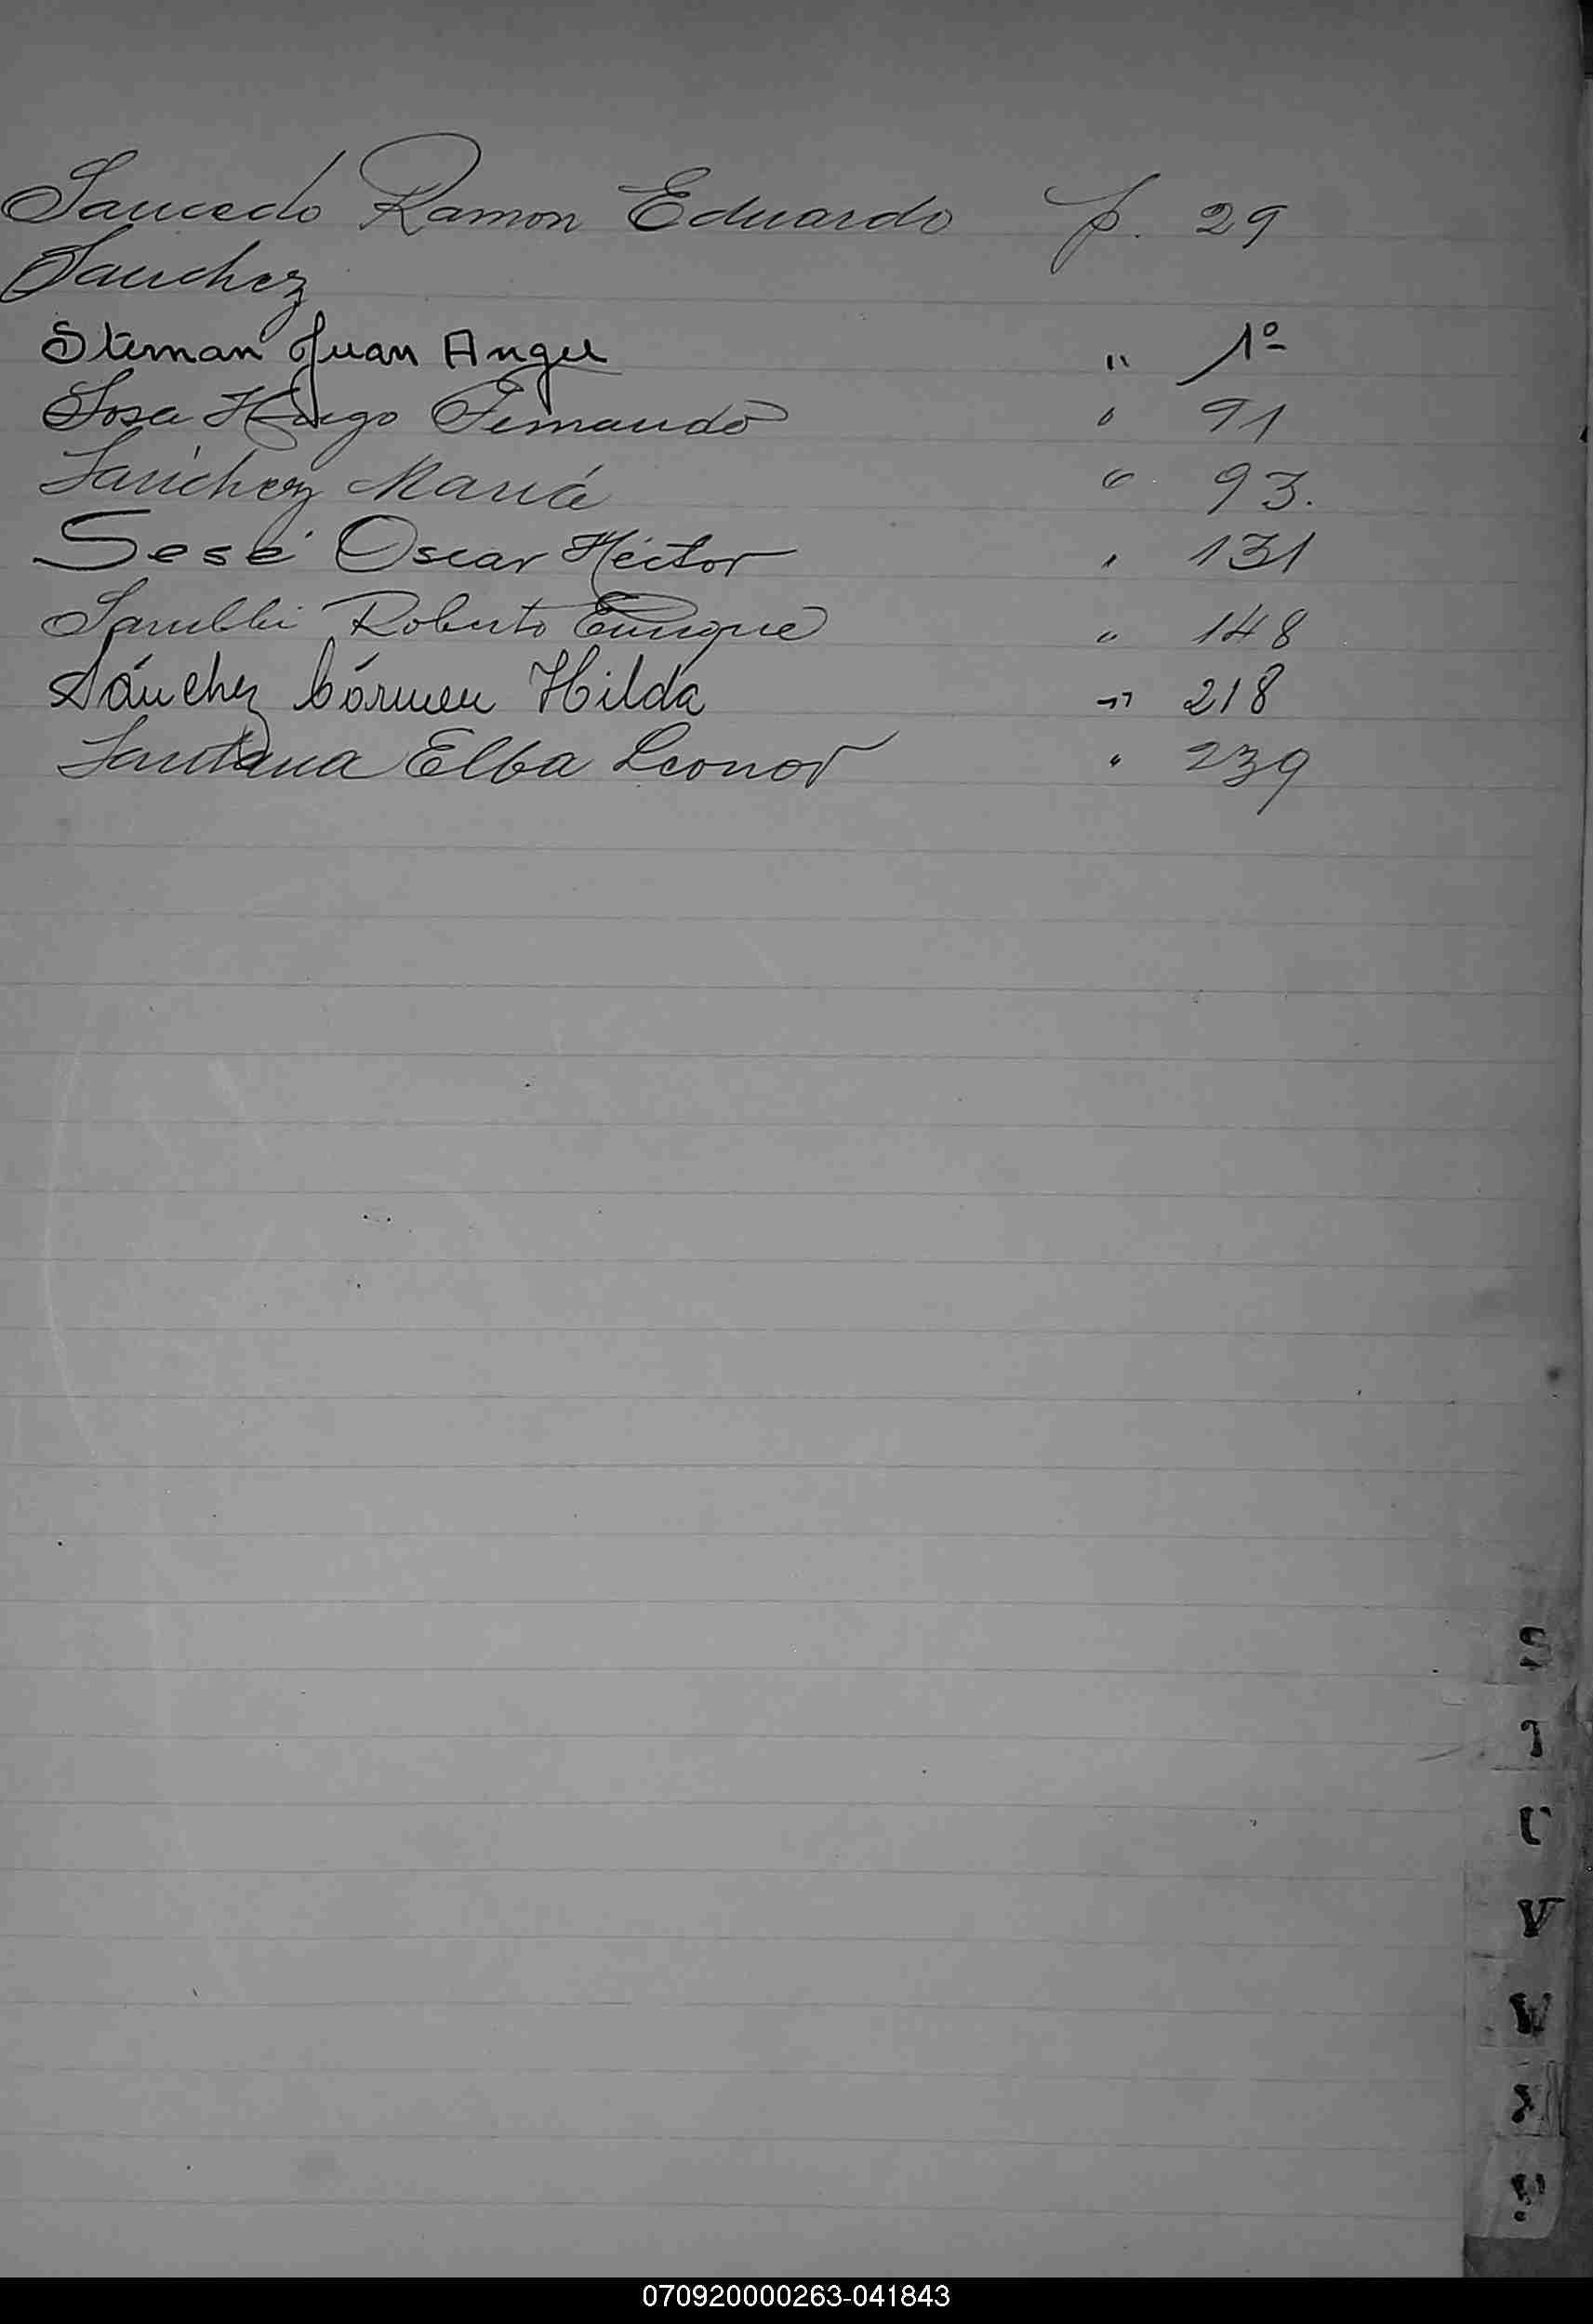 Saucedo Ramon Eduardo p. 29
Sanchez
Steman Juan Angel " 1º
Sosa Hugo Fernando " 91
Sanchez María " 93.
Sesé Oscar Héctor " 131
Roberto Enrique " 148
Sánchez Cármen Hilda " 218
Santana Elba Leonor " 239
S
T
U
V
W
070920000263-041843